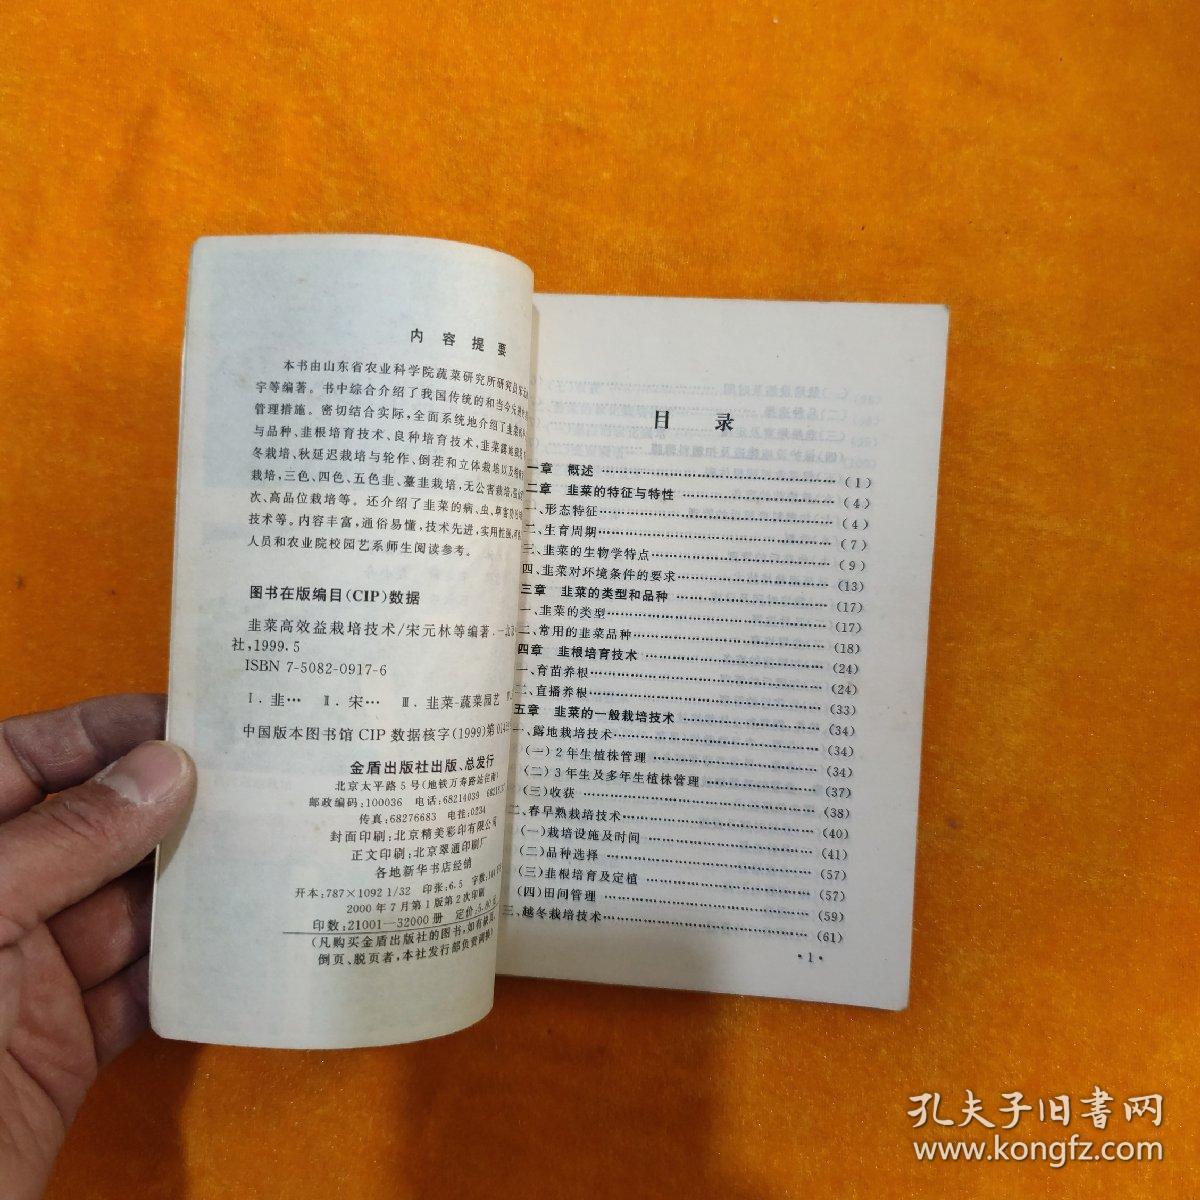 内 容 提 要
本书由山东省农业科学院蔬菜研究所研究员宋元
宇等编著。书中综合介绍了我国传统的和当今
管理措施。密切结合实际,全面系统地介绍了韭菜
与品种、韭根培育技术、良种培育技术,韭菜露地
冬栽培、秋延迟栽培与轮作、倒茬和立体栽培以及
栽培,三色、四色、五色韭、薹韭栽培,无公害栽培,
次、高品位栽培等。还介绍了韭菜的病、虫、草害
技术等。内容丰富,通俗易懂,技术先进,实用性强,
人员和农业院校园艺系师生阅读参考。
图书在版编目(CIP)数据
韭菜高效益栽培技术/宋元林等编著.—北
社,1999.5
ISBN 7-5082-0917-6
Ⅰ.韭… Ⅱ.宋… Ⅲ.韭菜-蔬菜园艺
中国版本图书馆CIP数据核字(1999)第
金盾出版社出版、总发行
北京太平路5号(地铁万寿路站往南)
邮政编码:100036 电话:68214039
传真:68276683 电挂:0234
封面印刷:北京精美彩印有限公司
正文印刷:北京翠通印刷厂
各地新华书店经销
开本:787×1092 1/32 印张:6.5 字数:
2000年7月第1版第2次印刷
印数:21001—32000册 定价:5.
(凡购买金盾出版社的图书,如有缺页、
倒页、脱页者,本社发行部负责调换)
目 录
一章 概述……(1)
二章 韭菜的特征与特性……(4)
一、形态特征……(4)
二、生育周期……(7)
三、韭菜的生物学特点……(9)
四、韭菜对环境条件的要求……(13)
三章 韭菜的类型和品种……(17)
一、韭菜的类型……(17)
二、常用的韭菜品种……(18)
四章 韭根培育技术……(24)
一、育苗养根……(24)
二、直播养根……(33)
五章 韭菜的一般栽培技术……(34)
一、露地栽培技术……(34)
(一)2年生植株管理……(34)
(二)3年生及多年生植株管理……(37)
(三)收获……(38)
二、春早熟栽培技术……(40)
(一)栽培设施及时间……(41)
(二)品种选择……(57)
(三)韭根培育及定植……(57)
(四)田间管理……(59)
三、越冬栽培技术……(61)
·1·
孔夫子旧书网
www.kongfz.com